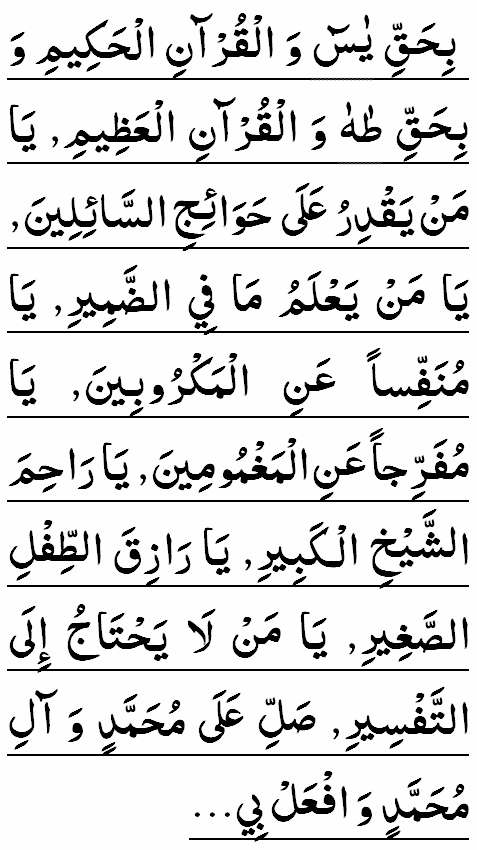 بِحَقِّ يٰسٓ وَ الْقُرْآنِ الْحَكِيمِ وَ
بِحَقِّ طٰهٰ وَ الْقُرْآنِ الْعَظِيمِ, يَا
مَنْ يَقْدِرُ عَلَى حَوَائِجِ السَّائِلِينَ,
يَا مَنْ يَعْلَمُ مَا فِي الضَّمِيرِ, يَا
مُنَفِّساً عَنِ الْمَكْرُوبِينَ, يَا
مُفَرِّجاً عَنِ الْمَغْمُومِينَ, يَا رَاحِمَ
الشَّيْخِ الْكَبِيرِ, يَا رَازِقَ الطِّفْلِ
الصَّغِيرِ, يَا مَنْ لَا يَحْتَاجُ إِلَى
التَّفْسِيرِ, صَلِّ عَلَى مُحَمَّدٍ وَ آلِ
مُحَمَّدٍ وَ افْعَلْ بِي...